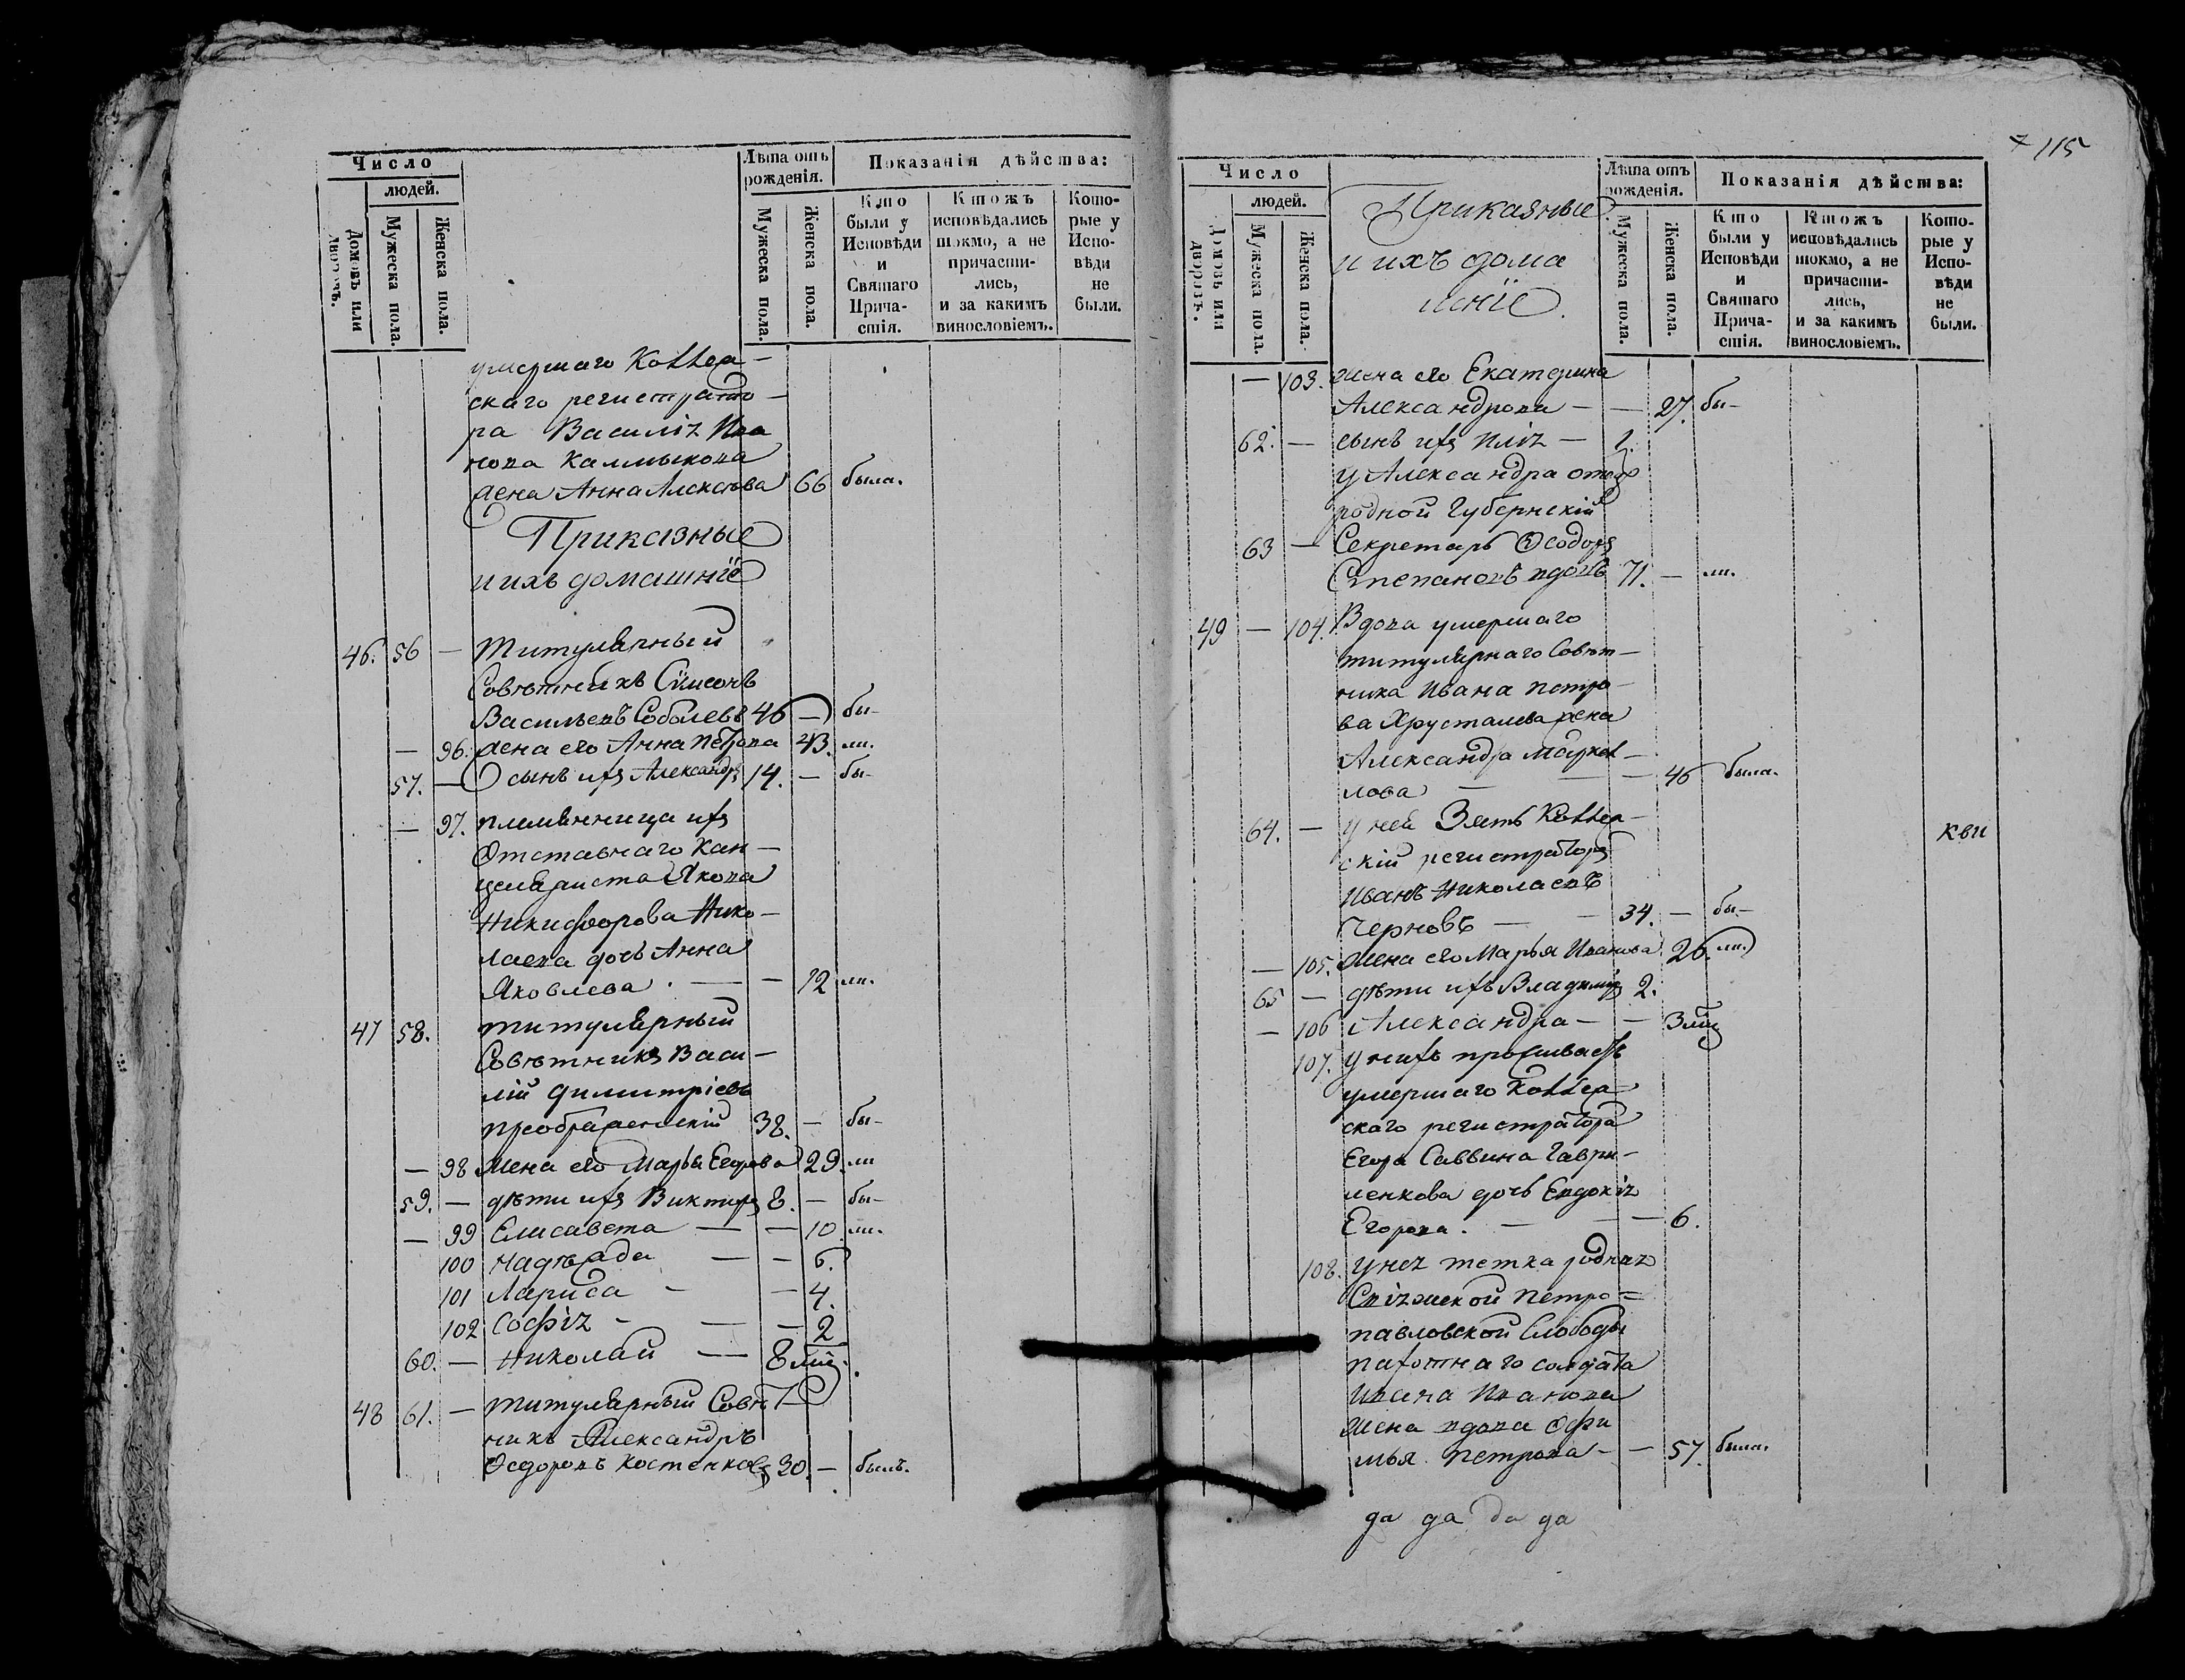 Число
людей.
Домовъ или дворовъ.
Мужеска пола.
Женска пола.
Лѣта отъ рожденія.
Мужеска пола.
Женска пола.
Показанія дѣйства:
Кто были у Исповѣди и Святаго Причастія.
Ктожъ исповѣдались токмо, а не причастились, и за какимъ винословіемъ.
Которые у Исповѣди не были.
умершаго Коллеж-
скаго регистрато-
ра Василія Ива
нова Калмыкова
жена Анна Алексѣева 66 была.
Приказные
и ихъ домашніе
46. 56 — Титулярный
Совѣтникъ Симеонъ
Васильевъ Соболевъ 46 — бы-
— 96. жена его Анна Петрова 43. ли.
57. — сынъ ихъ Александръ 14. — бы-
— 97. племянница ихъ
Отставнаго Кан-
целяриста Якова
Никифорова Нико-
лаева дочь Анна
Яковлева. — — 12 ли.
47 58. титулярный
Совѣтникъ Васи-
лій Димитріевъ
Преображенскій 38. — бы-
— 98 Жена его Марья Егорова 29. ли
59. — дѣти ихъ Викторъ 8. — бы-
— 99 Елисавета — — 10. ли.
100 Надѣжда — — 6.
101 Лариса - — 4.
102 Софія - — — 2
60. — Николай — 8 мѣс.
48 61. — титулярный Совѣт
никъ Александръ
Ѳедоровъ Костенковъ 30. — былъ.
115
Число
людей.
Домовъ или дворовъ.
Мужеска пола.
Женска пола.
Приказные
и ихъ дома
шніе.
Лѣта отъ рожденія.
Мужеска пола.
Женска пола.
Показанія дѣйства:
Кто были у Исповѣди и Святаго Причастія.
Ктожъ исповѣдались токмо, а не причастились, и за какимъ винословіемъ.
Которые у Исповѣди не были.
— 103. жена его Екатерина
Александрова — — 27. бы-
62. — сынъ ихъ Илія — 1.
у Александра отецъ
родной Губернскій
63 — Секретарь Ѳеодоръ
Степановъ вдовъ 71. — ли.
49 — 104. Вдова умершаго
титулярнаго Совѣт-
ника Ивана Петро-
ва Хрусталева жена
Александра Маркел-
лова — — — 46 была.
64. — у ней Зять Коллеж-
кви
скій регистраторъ
Иванъ Николаевъ
Черновъ — - 34. — бы-
— 105. Жена его Марья Иванова 26. ли.
65 — дѣти ихъ Владиміръ 2.
— 106 Александра — — 3 мѣс
107. у нихъ проживаетъ
умершаго Коллеж-
скаго регистратора
Егора Саввина Гаври-
ленкова дочь Евдокія
Егорова. — — — 6.
108. у нея тетка родная
Свіяжской Петро-
павловской Слободы
пахотнаго солдата
Ивана Иванова
жена вдова Ефи
мья Петрова — — 57. была.
да да да да